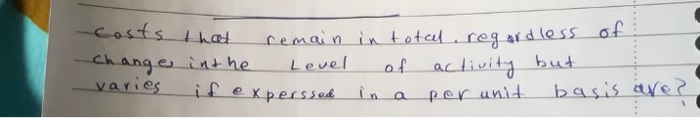 costs that remain in total. regardless of
changes in the Level of activity but
varies if experssed in a per unit basis are?